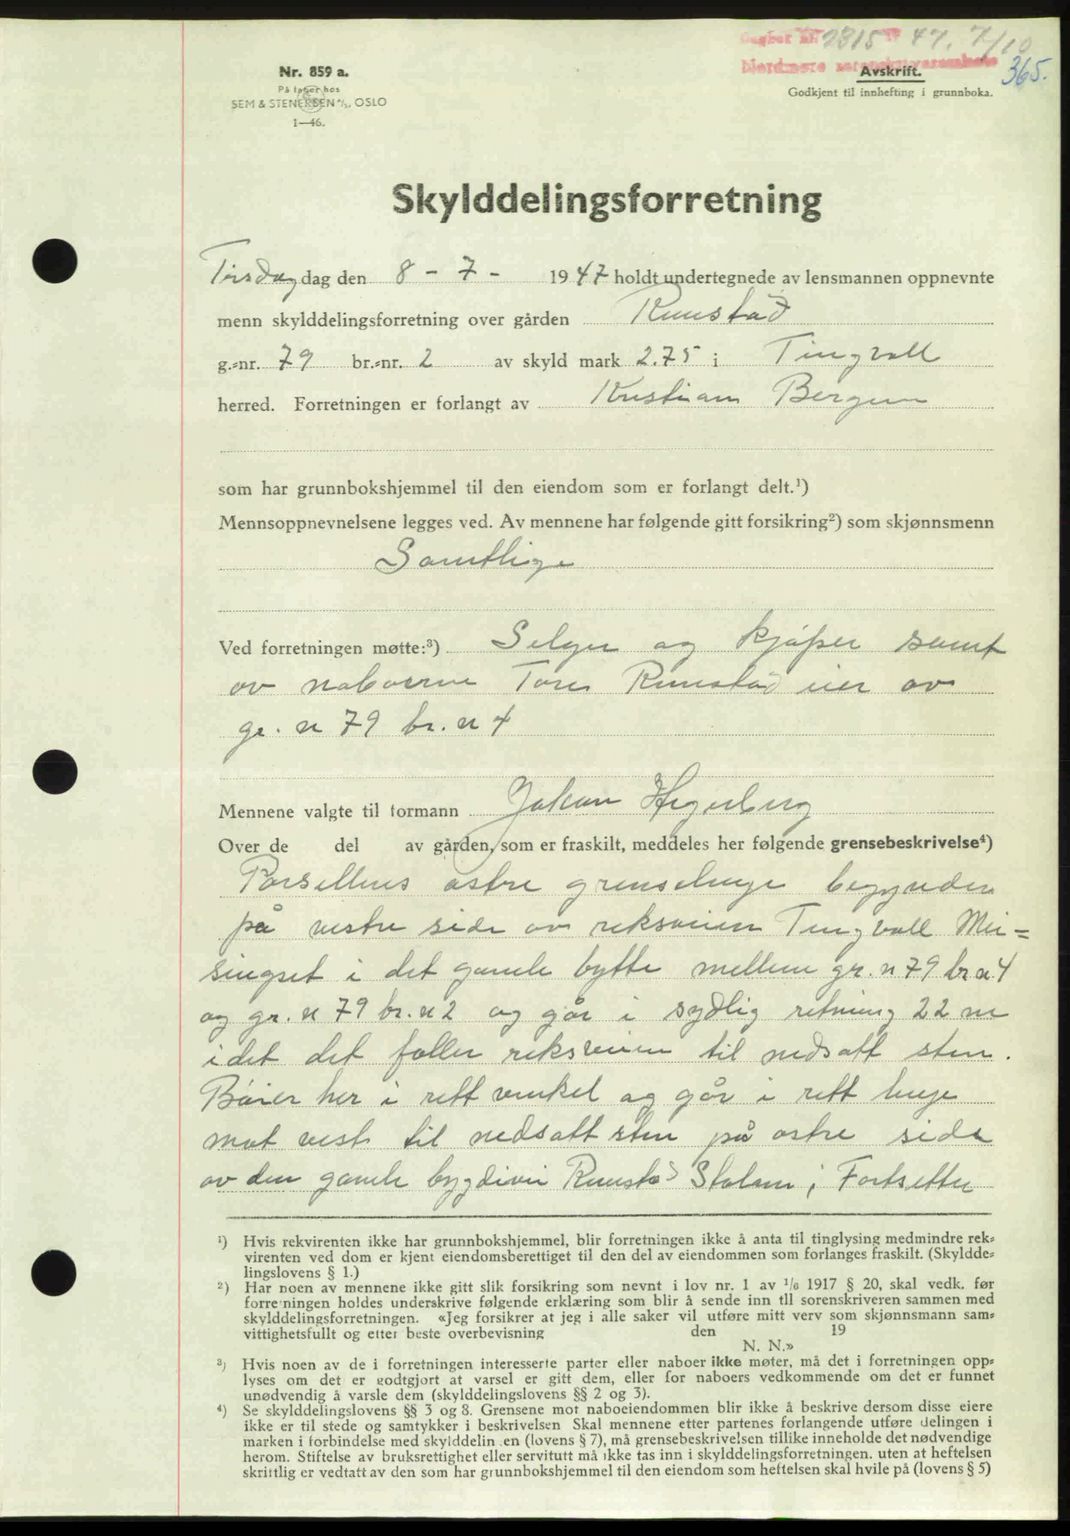 Dagbok nr 2815 19 47. 7/10
Nordmøre sorenskriverembete
365.
Nr. 859 a.
På lager hos
SEM & STENERSEN A/S, OSLO
1—46.
Avskrift.
Godkjent til innhefting i grunnboka.
Skylddelingsforretning
Tirsdag dag den 8 - 7 - 1947 holdt undertegnede av lensmannen oppnevnte
menn skylddelingsforretning over gården Runstad
g.-nr. 79 br.-nr. 2 av skyld mark 2.75 i Tingvoll
herred. Forretningen er forlangt av Kristian Bergum
som har grunnbokshjemmel til den eiendom som er forlangt delt.¹)
Mennsoppnevnelsene legges ved. Av mennene har følgende gitt forsikring²) som skjønnsmenn
Samtlige
Ved forretningen møtte:³) Selger og kjøper samt
av naboerne Tore Runstad eier av
gr. n 79 br. n 4
Mennene valgte til formann Johan Hegerberg
Over de del av gården, som er fraskilt, meddeles her følgende grensebeskrivelse⁴)
Parsellens østre grenselinje begynder
på vestre side av riksveien Tingvoll Mei=
singset i det gamle bytte mellem gr. n 79 br n 4
og gr. n 79 br. n 2 og går i sydlig retning 22 m
i det det føller riksveien til nedsatt sten.
Bøier her i rett vinkel og går i rett linje
mot vest til nedsatt sten på østre side
av den gamle bygdivei Runstad Stolan; Fortsetter
¹) Hvis rekvirenten ikke har grunnbokshjemmel, blir forretningen ikke å anta til tinglysing medmindre rek-
virenten ved dom er kjent eiendomsberettiget til den del av eiendommen som forlanges fraskilt. (Skyldde-
lingslovens § 1.)
²) Har noen av mennene ikke gitt slik forsikring som nevnt i lov nr. 1 av 1/6 1917 § 20, skal vedk. før
forretningen holdes underskrive følgende erklæring som blir å sende inn til sorenskriveren sammen med
skylddelingsforretningen. «Jeg forsikrer at jeg i alle saker vil utføre mitt verv som skjønnsmann sam-
vittighetsfullt og etter beste overbevisning den 19
N. N.»
³) Hvis noen av de i forretningen interesserte parter eller naboer ikke møter, må det i forretningen opp-
lyses om det er godtgjort at varsel er gitt dem, eller for naboers vedkommende om det er funnet
unødvendig å varsle dem (skylddelingslovens §§ 2 og 3).
⁴) Se skylddelingslovens §§ 3 og 8. Grensene mot naboeiendommen blir ikke å beskrive dersom disse eiere
ikke er til stede og samtykker i beskrivelsen Skal mennene etter partenes forlangende utføre delingen i
marken i forbindelse med skylddelingen (lovens § 7), må grensebeskrivelsen tillike inneholde det nødvendige
herom. Stiftelse av bruksrettighet eller servitutt må ikke tas inn i skylddelingsforretningen. uten at heftelsen
skriftlig er vedtatt av den som har grunnbokshjemmel til den eiendom som heftelsen skal hvile på (lovens § 5)